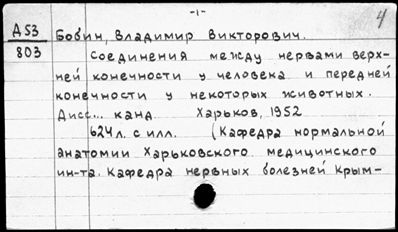 -1-
4
Д53
803
Бобин, Владимир Викторович.
Соединения между нервами верх-
ней конечности у человека и передней
конечности у некоторых животных.
Дисс... канд. Харьков, 1952
624л. с илл. (Кафедра нормальной
анатомии Харьковского медицинского
ин-та. Кафедра нервных болезней Крым-